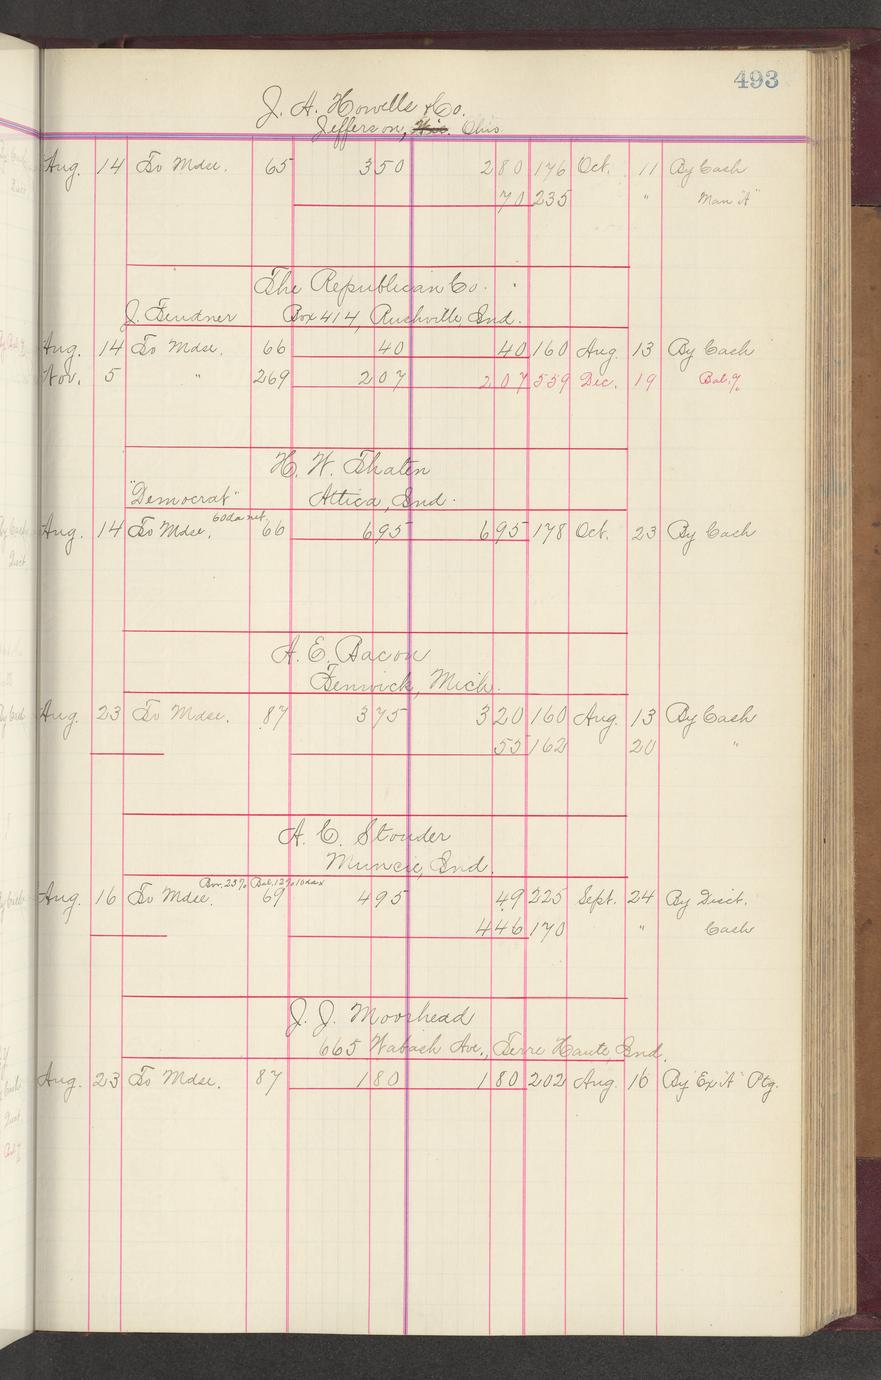 493
J. A. Howells & Co.
Jefferson, Wis. Ohio
Aug. 14 To Mdse. 65 350 280 176 Oct. 11 By Cash
70 235 " Man "A"
The Republican Co.
J. Feudner Box 414, Rushville Ind.
Aug. 14 To Mdse. 66 40 40 160 Aug. 13 By Cash
Nov. 5 " 269 207 207 559 Dec. 19 Bal. %
H. W. Thaten
"Democrat" Attica, Ind.
60 da net
Aug. 14 To Mdse. 66 695 695 178 Oct. 23 By Cash
A. E. Bacon
Fenwick, Mich.
Aug. 23 To Mdse. 87 375 320 160 Aug. 13 By Cash
55 162 20 "
A. C. Stouder
Muncie, Ind.
Bor. 25% Bal. 12% 10 dax
Aug. 16 To Mdse. 69 495 49 225 Sept. 24 By Disct.
446 170 " Cash
J. J. Moorhead
665 Wabash Ave., Terre Haute Ind.
Aug. 23 To Mdse. 87 180 180 202 Aug. 16 By Ex "A" Ptg.